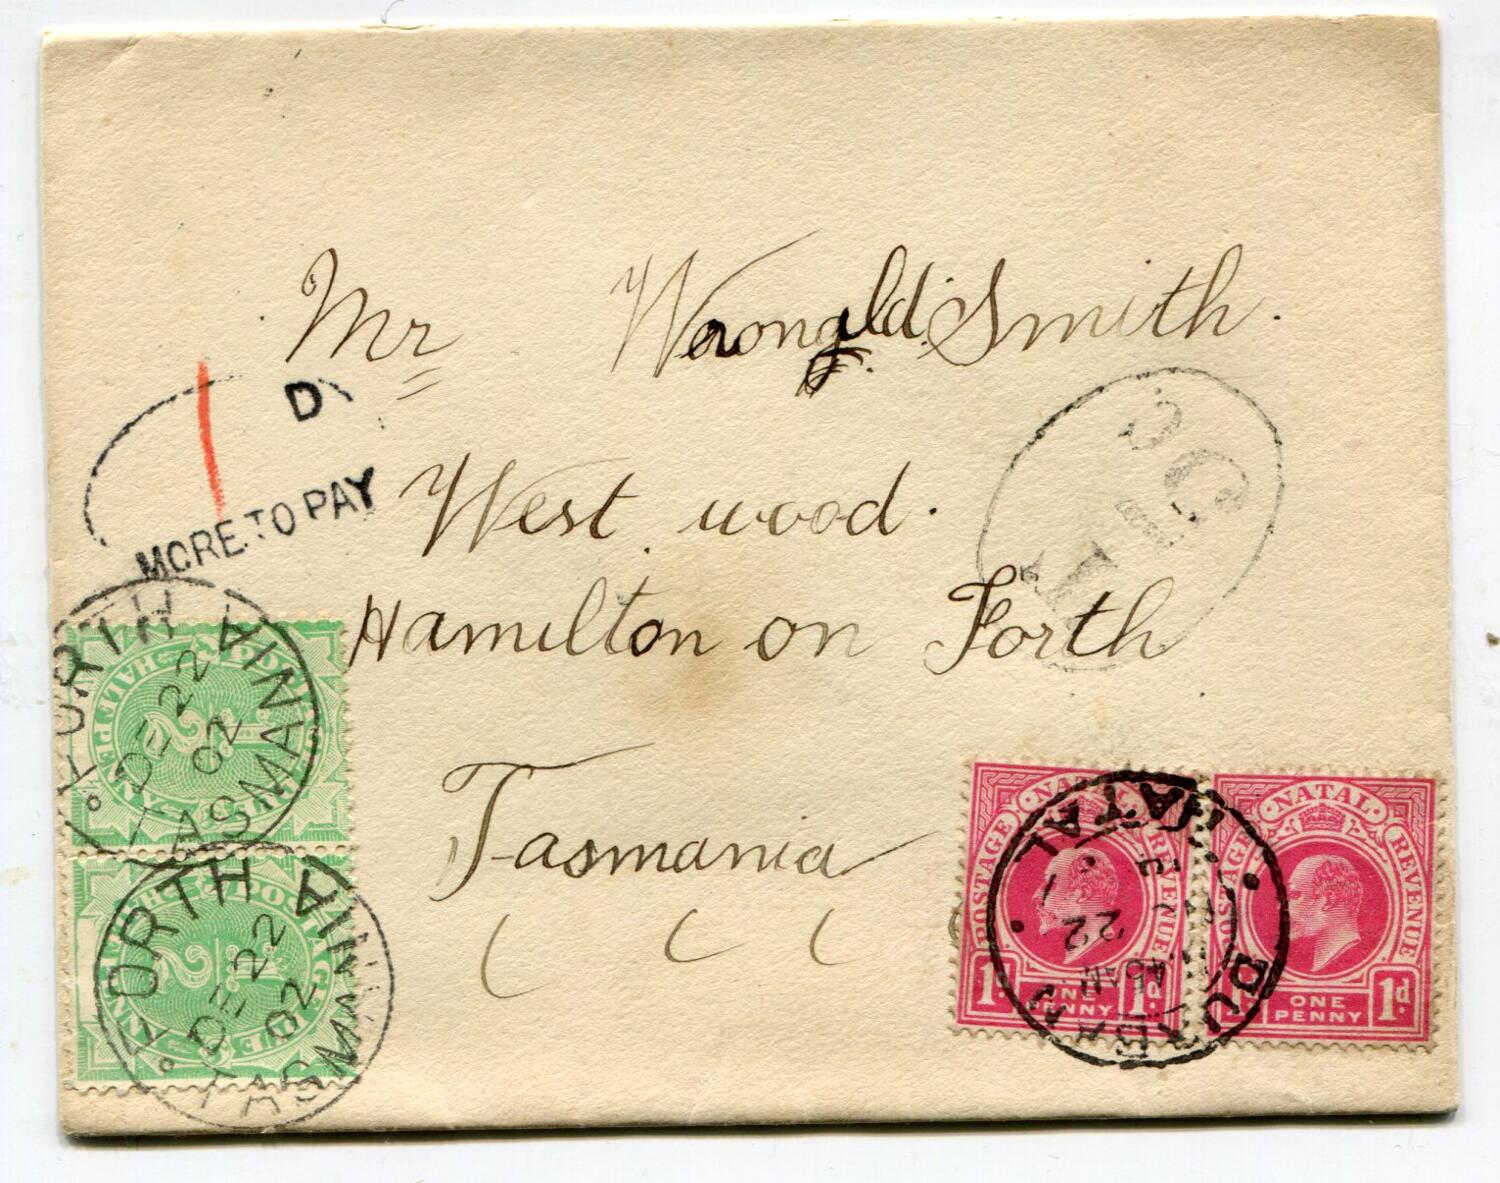 Mr Smith.
1 D
MORE TO PAY
West wood.
Hamilton on Forth
Tasmania
T
FORTH
DE 22
02
TASMANIA
HALFPENNY
FORTH
DE 22
02
TASMANIA
POSTAGE
NATAL
POSTAGE
REVENUE
1d
ONE PENNY
1d
NATAL
POSTAGE
REVENUE
ONE PENNY
1d
DURBAN
NATAL
22
45 AM